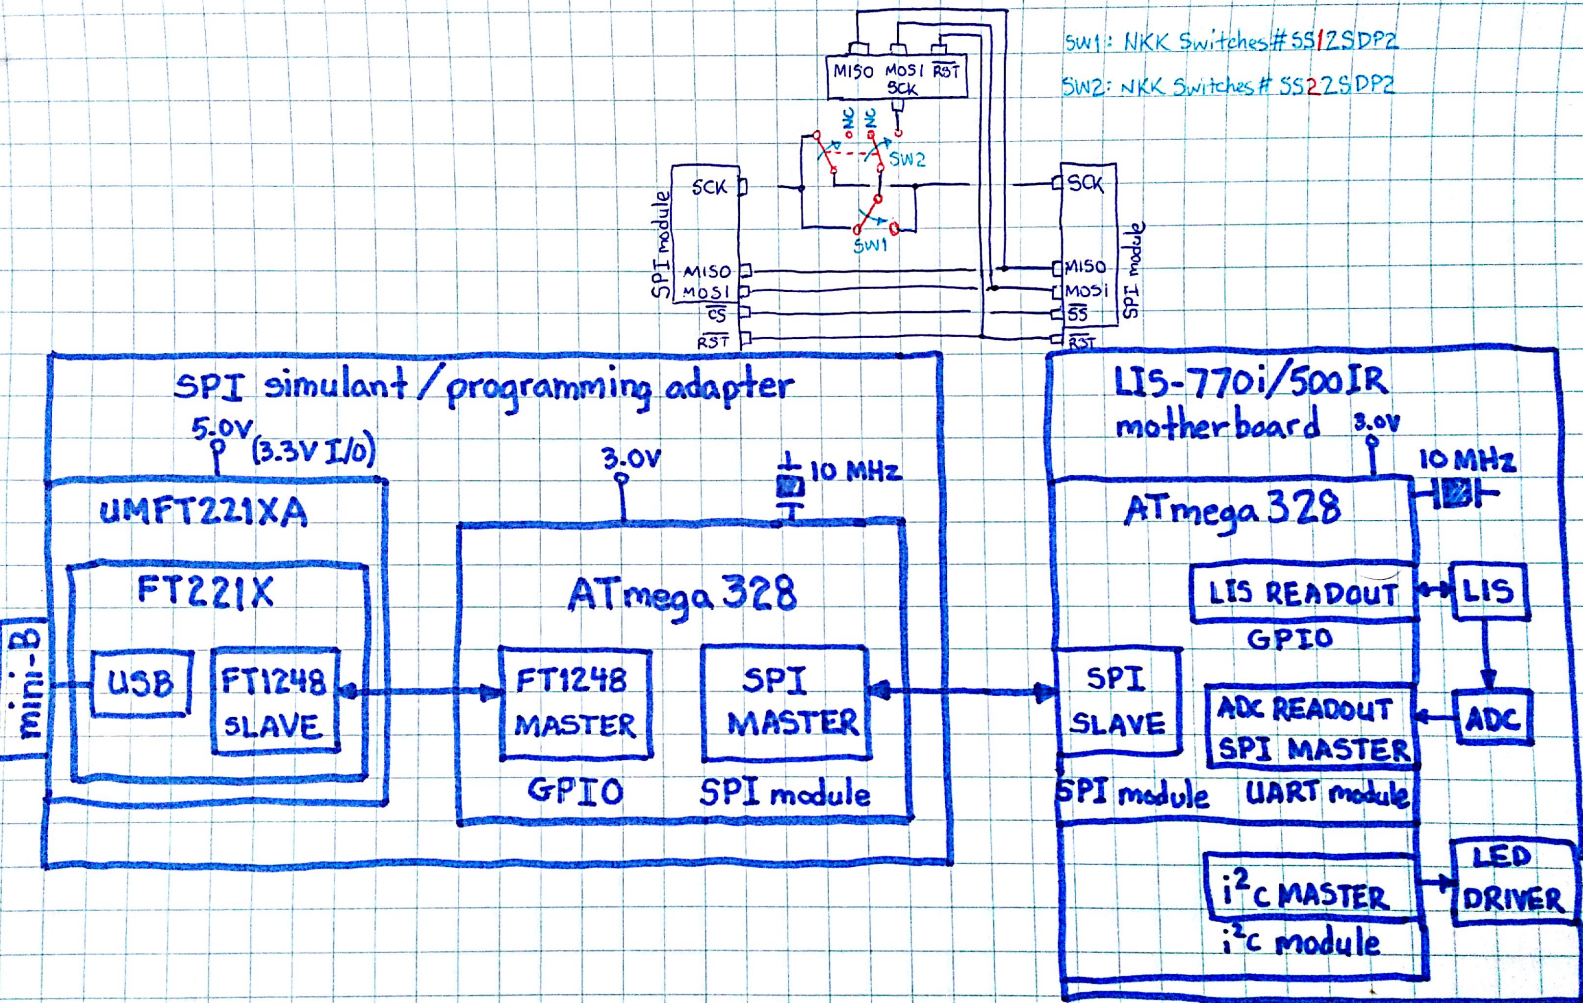 SW1: NKK Switches# SS12SDP2
SW2: NKK Switches# SS22SDP2
MISO MOSI RST
SCK
NC NC
SW2
SW1
SPI module
SCK
MISO
MOSI
CS
RST
SCK
MISO
MOSI
SS
RST
SPI module
SPI simulant/programming adapter
5.0V
(3.3V I/O)
UMFT221XA
FT221X
mini-B
USB
FT1248
SLAVE
3.0V
10 MHz
ATmega 328
FT1248
MASTER
GPIO
SPI
MASTER
SPI module
LIS-770i/500IR
motherboard
3.0V
10 MHz
ATmega 328
LIS READOUT
GPIO
LIS
SPI
SLAVE
SPI module
ADC READOUT
SPI MASTER
UART module
ADC
i²c MASTER
i²c module
LED
DRIVER